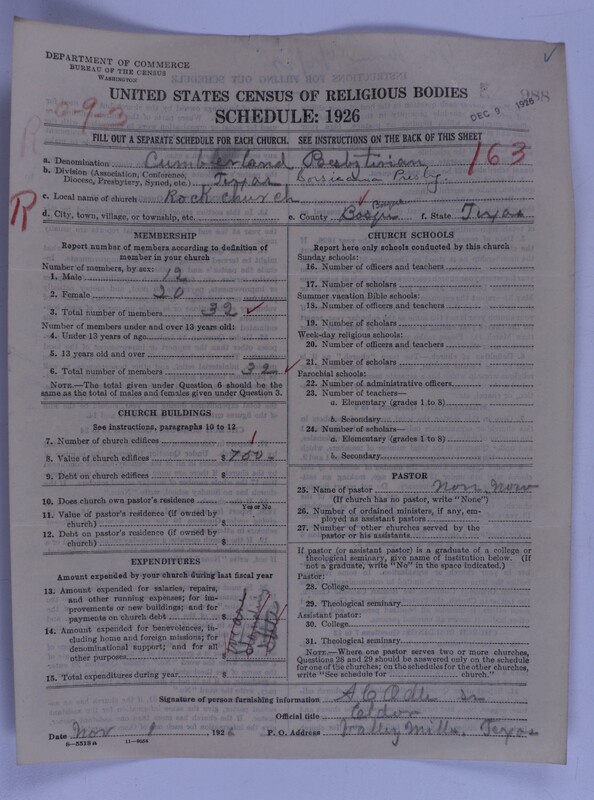 DEPARTMENT OF COMMERCE
BUREAU OF THE CENSUS
WASHINGTON
988
DEC 9 1926
UNITED STATES CENSUS OF RELIGIOUS BODIES
SCHEDULE: 1926
R 0-9-3
FILL OUT A SEPARATE SCHEDULE FOR EACH CHURCH. SEE INSTRUCTIONS ON THE BACK OF THIS SHEET
163
a. Denomination Cumberland Presbyterian
b. Division (Association, Conference, Diocese, Presbytery, Synod, etc.) Texas Corsicana Presby.
R
c. Local name of church Rock church
d. City, town, village, or township, etc. e. County Bosque Bosque f. State Texas
MEMBERSHIP
Report number of members according to definition of member in your church
Number of members, by sex:
1. Male 12
2. Female 20
3. Total number of members 32
Number of members under and over 13 years old:
4. Under 13 years of age
5. 13 years old and over
6. Total number of members 32
NOTE.—The total given under Question 6 should be the same as the total of males and females given under Question 3.
CHURCH BUILDINGS
See instructions, paragraphs 10 to 12
7. Number of church edifices 1
8. Value of church edifices $ 700-
9. Debt on church edifices $
10. Does church own pastor's residence
Yes or No
11. Value of pastor's residence (if owned by church) $
12. Debt on pastor's residence (if owned by church) $
EXPENDITURES
Amount expended by your church during last fiscal year
13. Amount expended for salaries, repairs, and other running expenses; for improvements or new buildings; and for payments on church debt $
14. Amount expended for benevolences, including home and foreign missions; for denominational support; and for all other purposes $
15. Total expenditures during year $
CHURCH SCHOOLS
Report here only schools conducted by this church
Sunday schools:
16. Number of officers and teachers
17. Number of scholars
Summer vacation Bible schools:
18. Number of officers and teachers
19. Number of scholars
Week-day religious schools:
20. Number of officers and teachers
21. Number of scholars
Parochial schools:
22. Number of administrative officers
23. Number of teachers—
a. Elementary (grades 1 to 8)
b. Secondary
24. Number of scholars—
a. Elementary (grades 1 to 8)
b. Secondary
PASTOR
25. Name of pastor Non Now
(If church has no pastor, write "None")
26. Number of ordained ministers, if any, employed as assistant pastors
27. Number of other churches served by the pastor or his assistants
If pastor (or assistant pastor) is a graduate of a college or theological seminary, give name of institution below. (If not a graduate, write "No" in the space indicated.)
Pastor:
28. College
29. Theological seminary
Assistant pastor:
30. College
31. Theological seminary
NOTE.—Where one pastor serves two or more churches, Questions 28 and 29 should be answered only on the schedule for one of the churches; on the schedules for the other churches, write "See schedule for church."
Signature of person furnishing information A C Odle Sr
Official title Eldor
Date Nov 1 1926 P. O. Address Valley Mills, Texas
8-5518a 11-9054